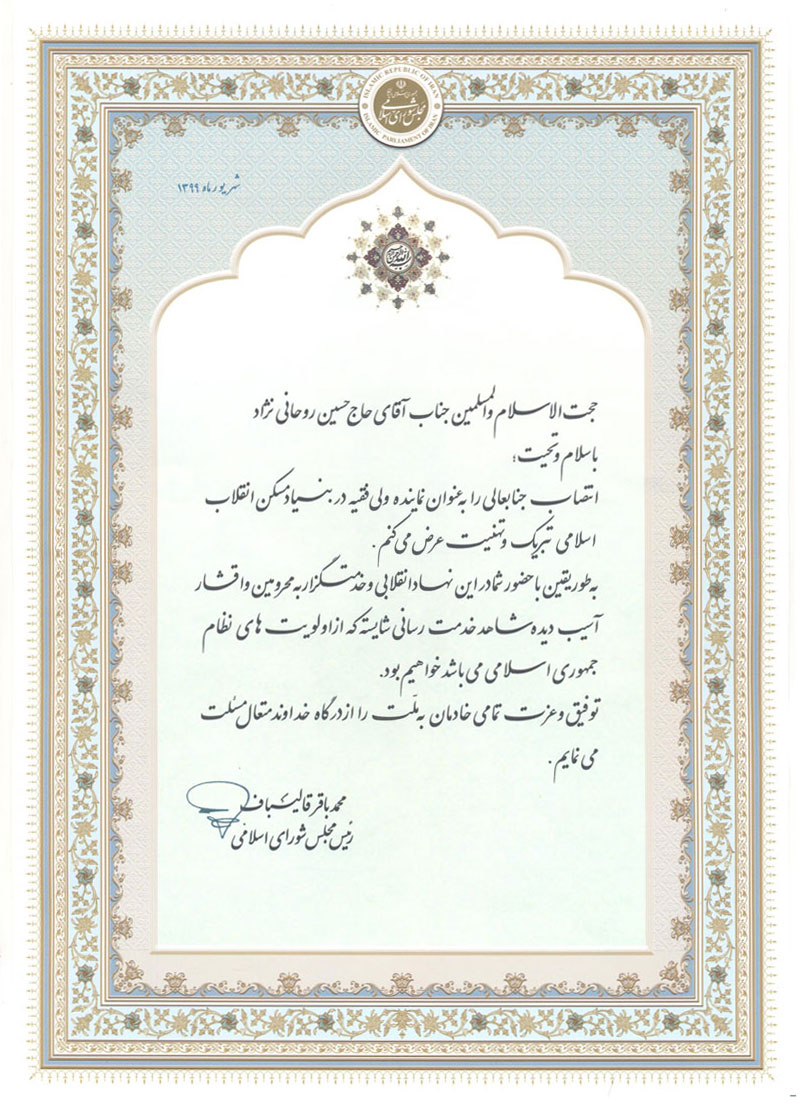 ISLAMIC REPUBLIC OF IRAN
مجلس شورای اسلامی
ISLAMIC PARLIAMENT OF IRAN
شهریور ماه ۱۳۹۹
حجت الاسلام والمسلمین جناب آقای حاج حسین روحانی نژاد
باسلام و تحیت؛
انتصاب جنابعالی را به عنوان نماینده ولی فقیه در بنیاد مسکن انقلاب
اسلامی تبریک و تهنیت عرض می کنم.
به طور یقین با حضور شما در این نهاد انقلابی و خدمتگزار به محرومین و اقشار
آسیب دیده شاهد خدمت رسانی شایسته که از اولویت های نظام
جمهوری اسلامی می باشد خواهیم بود.
توفیق و عزت تمامی خادمان به ملّت را از درگاه خداوند متعال مسئلت
می نمایم.
محمد باقر قالیباف
رئیس مجلس شورای اسلامی